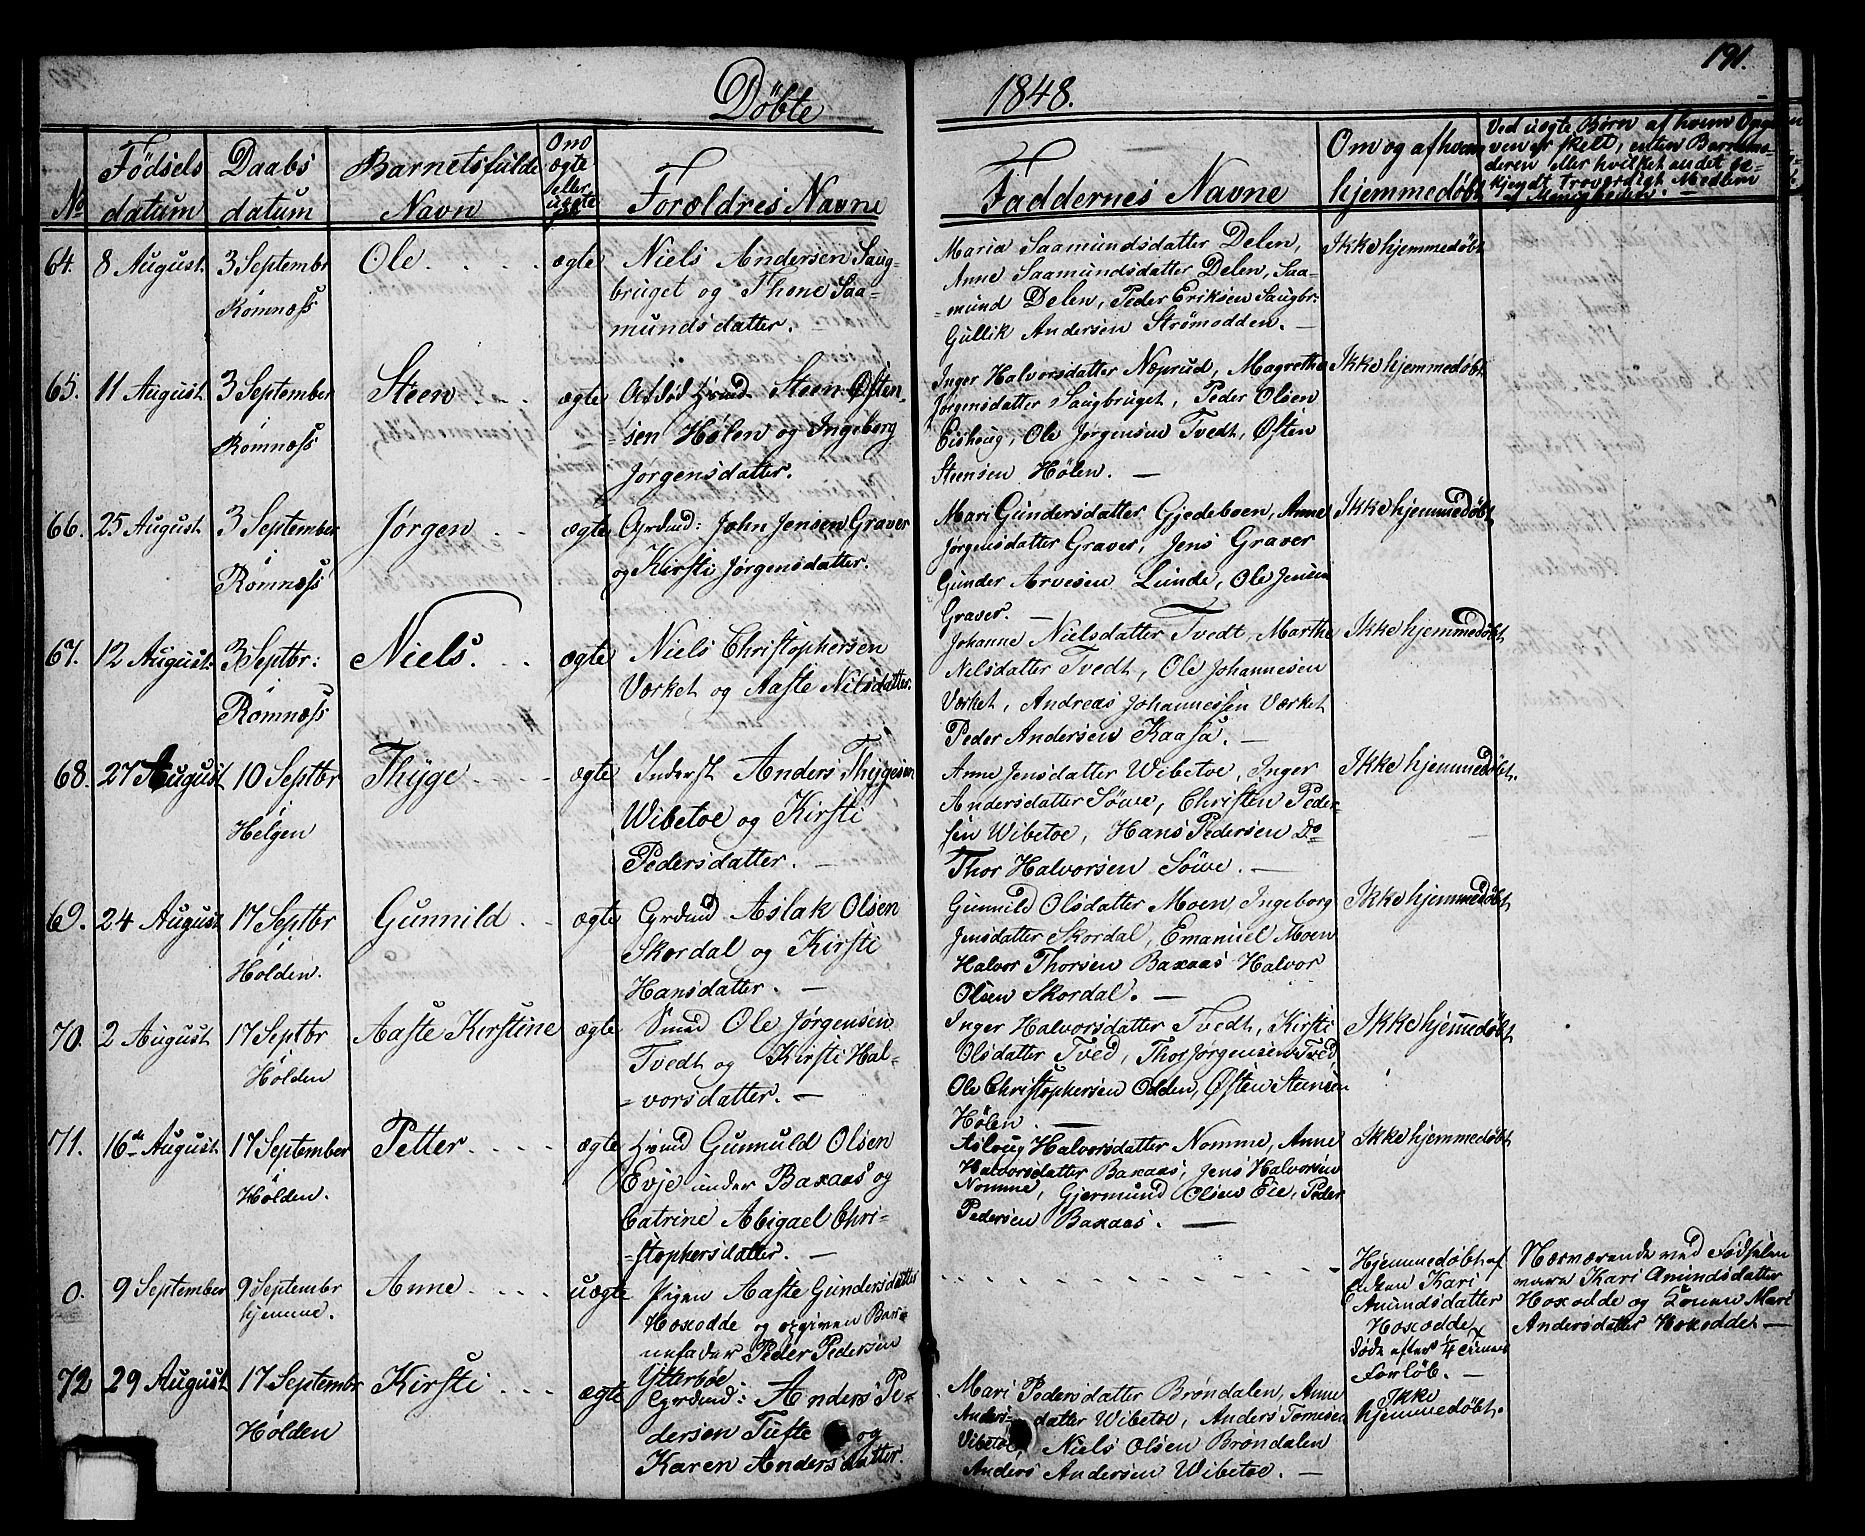 191.
Döbte
1848.
No
Födsels
datum
Daabs
datum
Barnets fulde
Navn
Om
ægte
eller
uægte
Forældres Navne
Faddernes Navne
Om og af hvem
hjemmedøbt
Ved uægte Børn af hvem Opga-
ven er skelt, enten Barnemo-
deren eller hvilket andet be-
kjendt troværdigt Medlem
af Menigheden.
64.
8 August
3 Septembr
i
Romnæss
Ole
ægte
Niels Andersen Saug-
bruget og Thone Saa-
mundsdatter.
Maria Saamundsdatter Delen,
Anne Saamundsdatter Delen, Saa-
=mund Delen, Peder Eriksen Saugbr:
Gullik Andersen Strømodden. —
Ikke hjemmedøbt
65.
11 August
3 September
i
Romnæss
Steen
ægte
Afdød Hmd. Steen Østen-
=sen Hølen og Ingeborg
Jørgensdatter.
Inger Halvorsdatter Næprud, Magrethe
Jørgensdatter Saugbruget, Peder Olsen
Eishoug, Ole Jørgensen Tvedt, Østen
Steensen Hølen. —
Ikke hjemmedøbt
66.
25 August
3 September
i
Romnæss
Jørgen
ægte
Grdmd: John Jensen Graver
og Kirsti Jørgensdatter.
Mari Gundersdatter Gjedeboen, Anne
Jørgensdatter Graver, Jens Graver
Gunder Arvesen Lunde, Ole Jensen
Graver. —
Ikke hjemmedøbt
67.
12 August
3 Septbr:
i
Romnæss
Niels.
ægte
Niels Christophersen
Værket og Aaste Nilsdatter.
Johanne Nielsdatter Tvedt, Marthe
Nilsdatter Tvedt, Ole Johannesen
Værket, Andreas Johannessen Værket
Peder Andersen Kaasa. —
Ikke hjemmedøbt
68.
27 August
10 Septbr
i
Helgen
Thyge
ægte
Inderst Anders Thygesen
Wibetoe og Kirsti
Pedersdatter. —
Anne Jensdatter Wibetoe, Inger
Andersdatter Söwe, Christen Peder-
sen Wibetoe, Hans Pedersen Do
Thor Halvorsen Söwe. —
Ikke hjemmedøbt.
69.
24 August
17 Septbr
i
Holden.
Gunnild
ægte
Grdmd Aslak Olsen
Skordal og Kirsti
Hansdatter. —
Gunnild Olsdatter Moen, Ingeborg
Jensdatter Skordal, Emanuel Moen
Halvor Thorsen Baxaas Halvor
Olsen Skordal. —
Ikke hjemmedøbt
70.
2 August
17 Septbr
i
Holden
Aaste Kirstine
ægte
Smed Ole Jørgensen
Tvedt og Kirsti Hal-
=vorsdatter. —
Inger Halvorsdatter Tvedt, Kirsti
Olsdatter Tved, Thor Jørgensen Tved
Ole Christophersen Odden, Østen Steensen
Hølen. —
Ikke hjemmedøbt
71.
16de August
17 September
i
Holden.
Petter
ægte
Hmd Gunnuld Olsen
Evje under Baxaas og
Catrine Abigael Chri-
=stophersdatter. —
Asloug Halvorsdatter Nomme, Anne
Halvorsdatter Baxaas, Jens Halvorsen
Nomme, Gjermund Olsen Eie, Peder
Pedersen Baxaas. —
Ikke hjemmedøbt
0.
9 September
9 Septembr
hjemme.
Anne
uægte
Pigen Aaste Gundersdatter
Hoxodde og opgiven Bar-
nefader Peder Pedersen
Ytterbøe.
Hjemmedøbt af
Enken Kari
Amundsdatter
Hoxodde
døde efter 1/4 Times
Forløb. —
Nærværende ved Fødselen
vare Kari Amundsdatter
Hoxodde og Konen Mari
Andersdatter Hoxodde. —
72
29 August
17 Septembr
i
Holden
Kirsti
ægte
Grdmd: Anders Pe-
dersen Tufte og
Karen Andersdatter.
Mari Pedersdatter Brøndalen, Anne
Anders-datter Wibetoe, Anders Tomesen
Vibetoe, Niels Olsen Brøndalen
Anders Andersen Wibetoe. —
Ikke
hjemmedøbt.